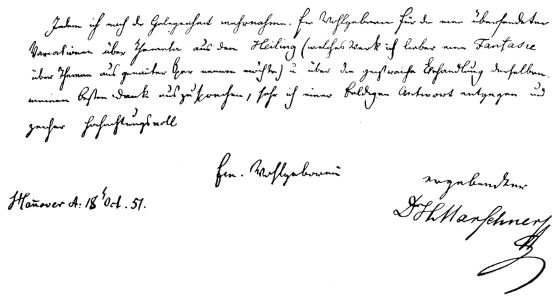 Indem ich noch die Gelegenheit wahrnehme, Ew Wohlgeboren für die mir übersendeten
Variationen über Themata aus dem Heiling (welches Werk ich lieber eine Fantasie
über Themen aus genannter Oper nennen möchte) u über die geistreiche Behandlung derselben
meinen besten Dank auszusprechen, sehe ich einer baldigen Antwort entgegen und
hochachtungsvoll
Ew. Wohlgeboren
ergebenster
Hanover d. 18 t Oct. 51.
Dr H Marschner